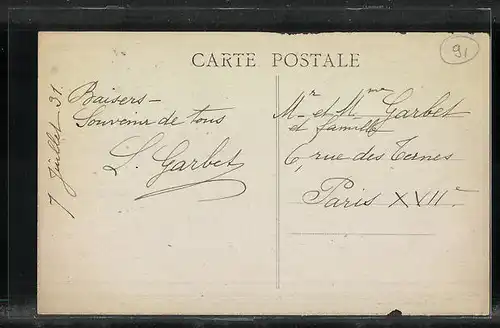 CARTE POSTALE
91
7 Juillet 31.
Baisers -
Souvenir de tous
L. Garbet
Mr et Mme Garbet
et famille
6, rue des Ternes
Paris XVIIe.